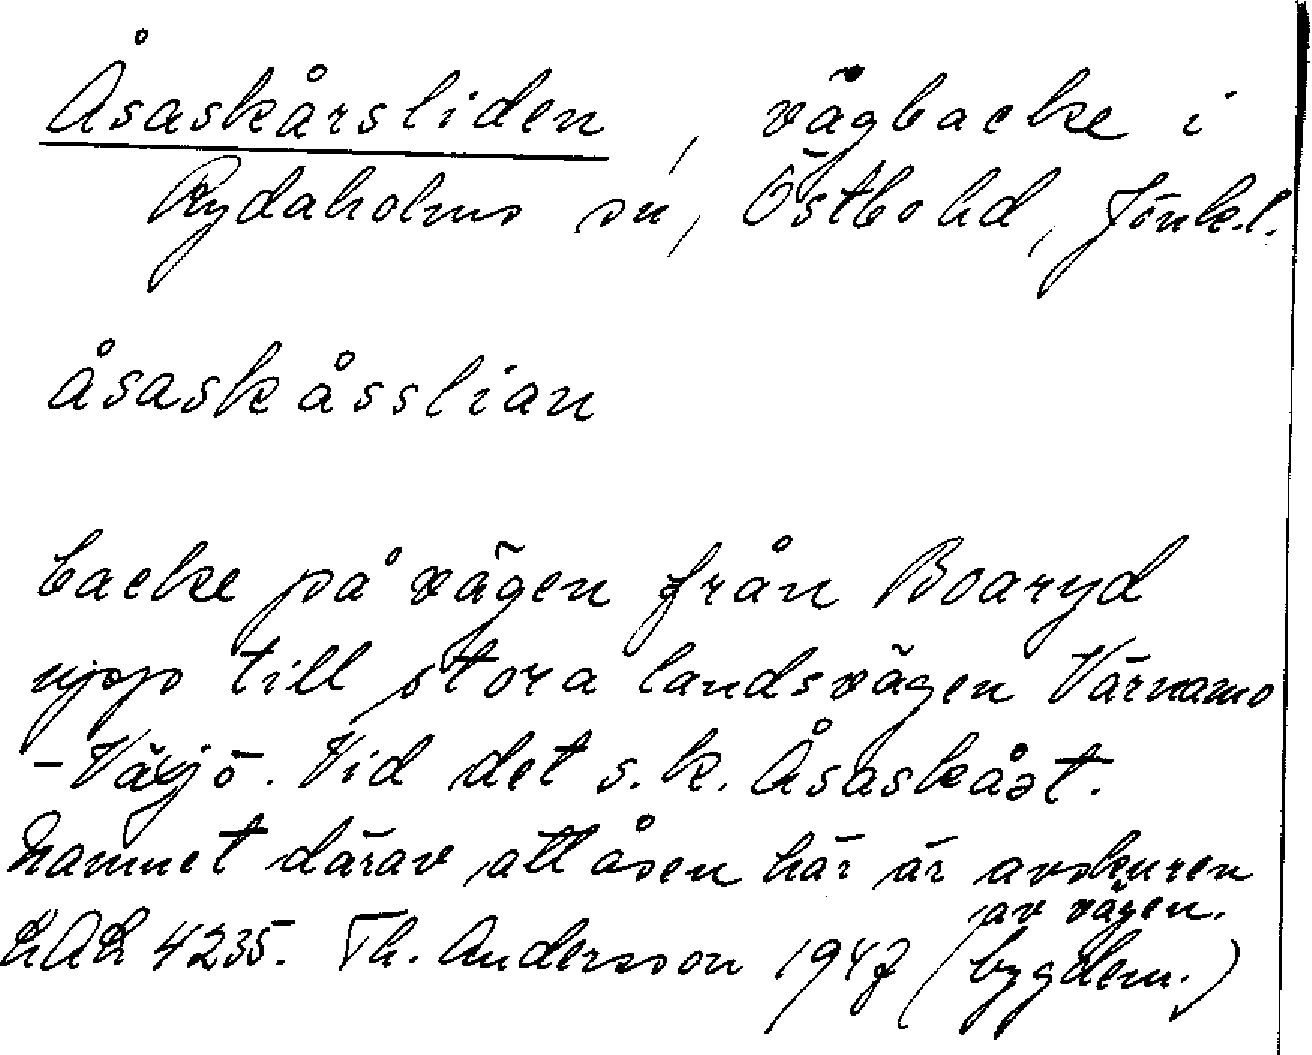 Åsaskårsliden, vägbacke i
Rydaholms sn, Östbo hd, Jönk.l.
åsaskåsslian
backe på vägen från Boaryd
upp till stora landsvägen Värnamo
-Växjö. Vid det s.k. Åsaskåst.
Namnet därav att åsen här är avskuren
av vägen.
4235. Th. Andersson 1947 (bygdem.)